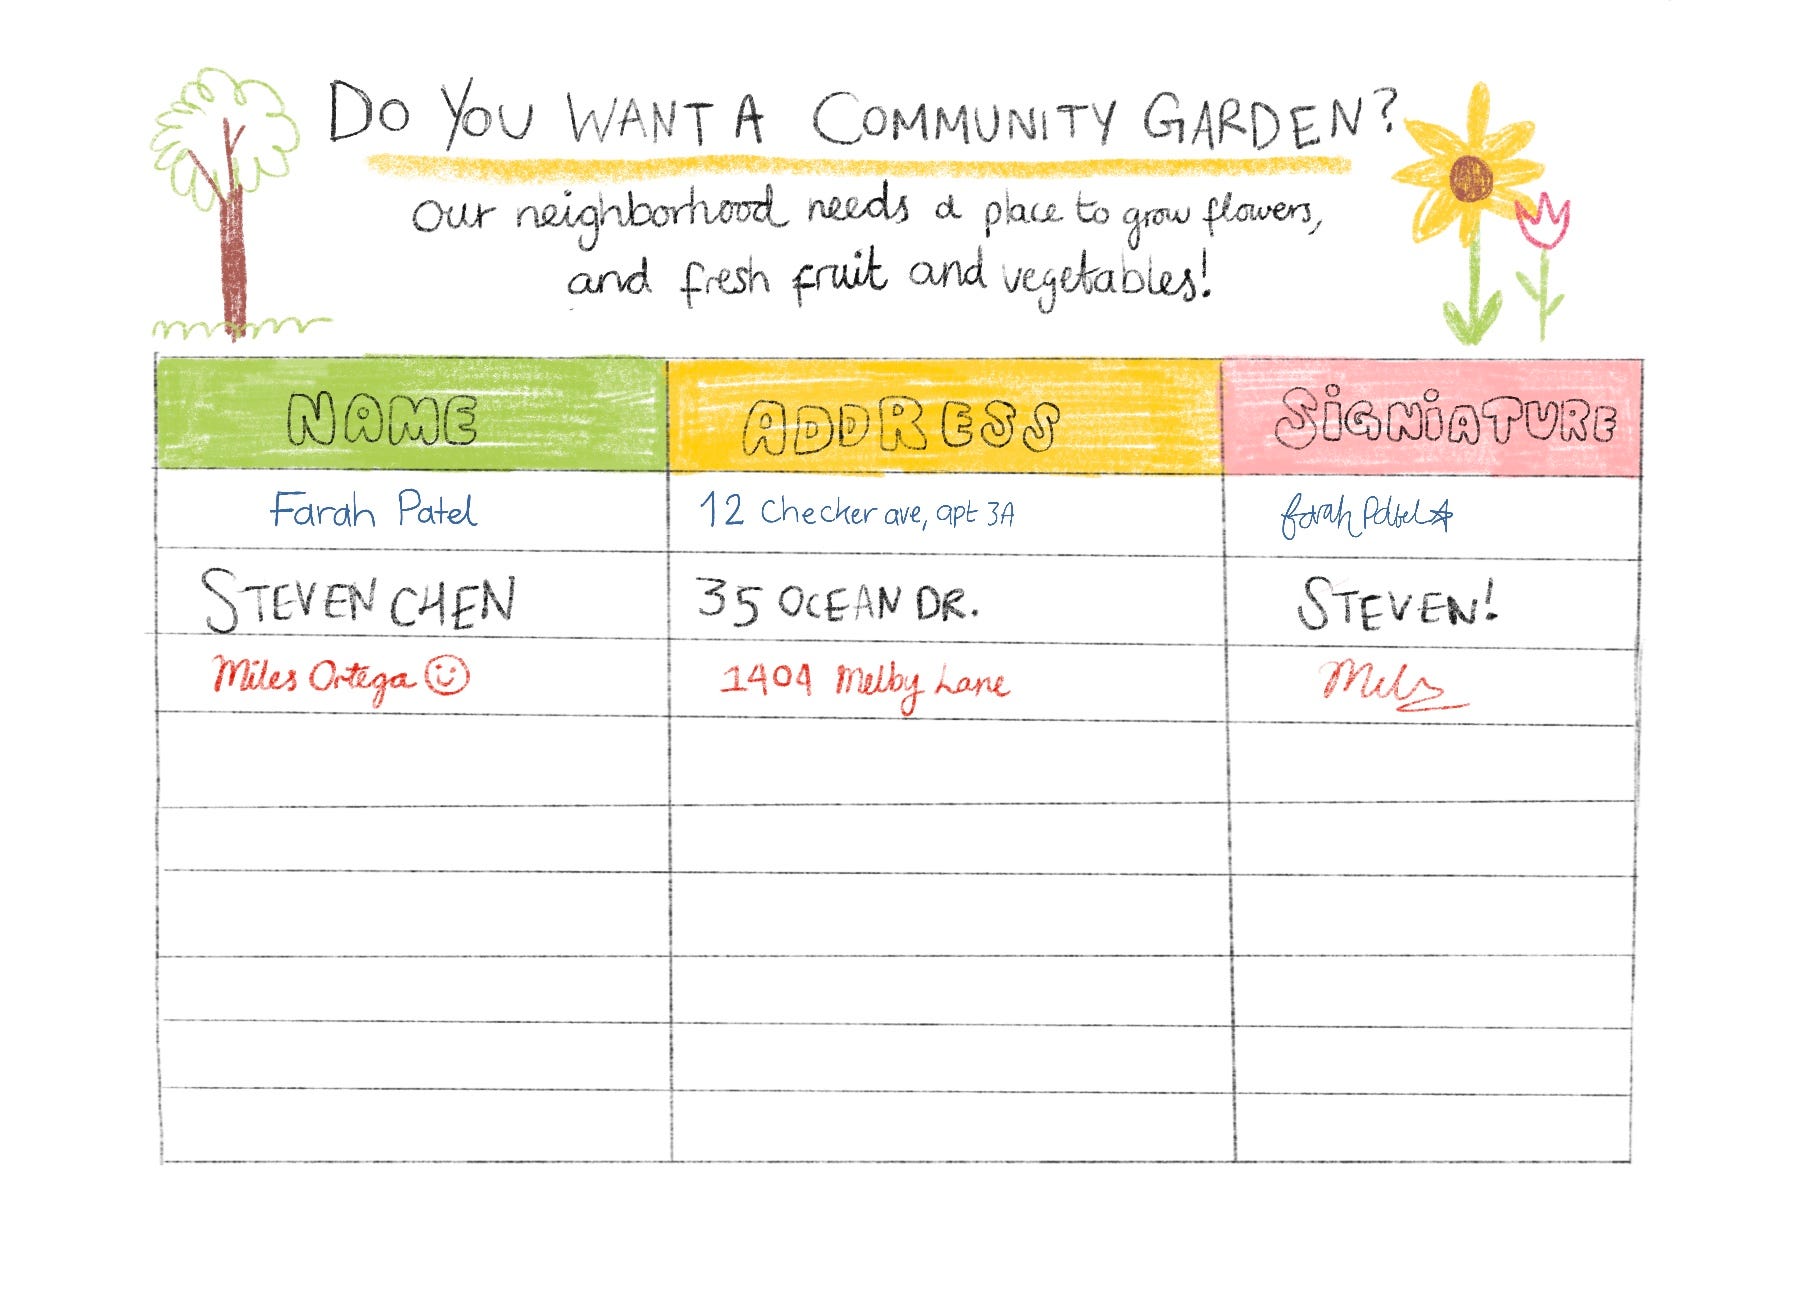 DO YOU WANT A COMMUNITY GARDEN?
Our neighborhood needs a place to grow flowers,
and fresh fruit and vegetables!
NAME ADDRESS SIGNIATURE
Farah Patel 12 Checker ave, apt 3A Farah Patel
STEVEN CHEN 35 OCEAN DR. STEVEN!
Miles Ortega 1404 Melby Lane Miles